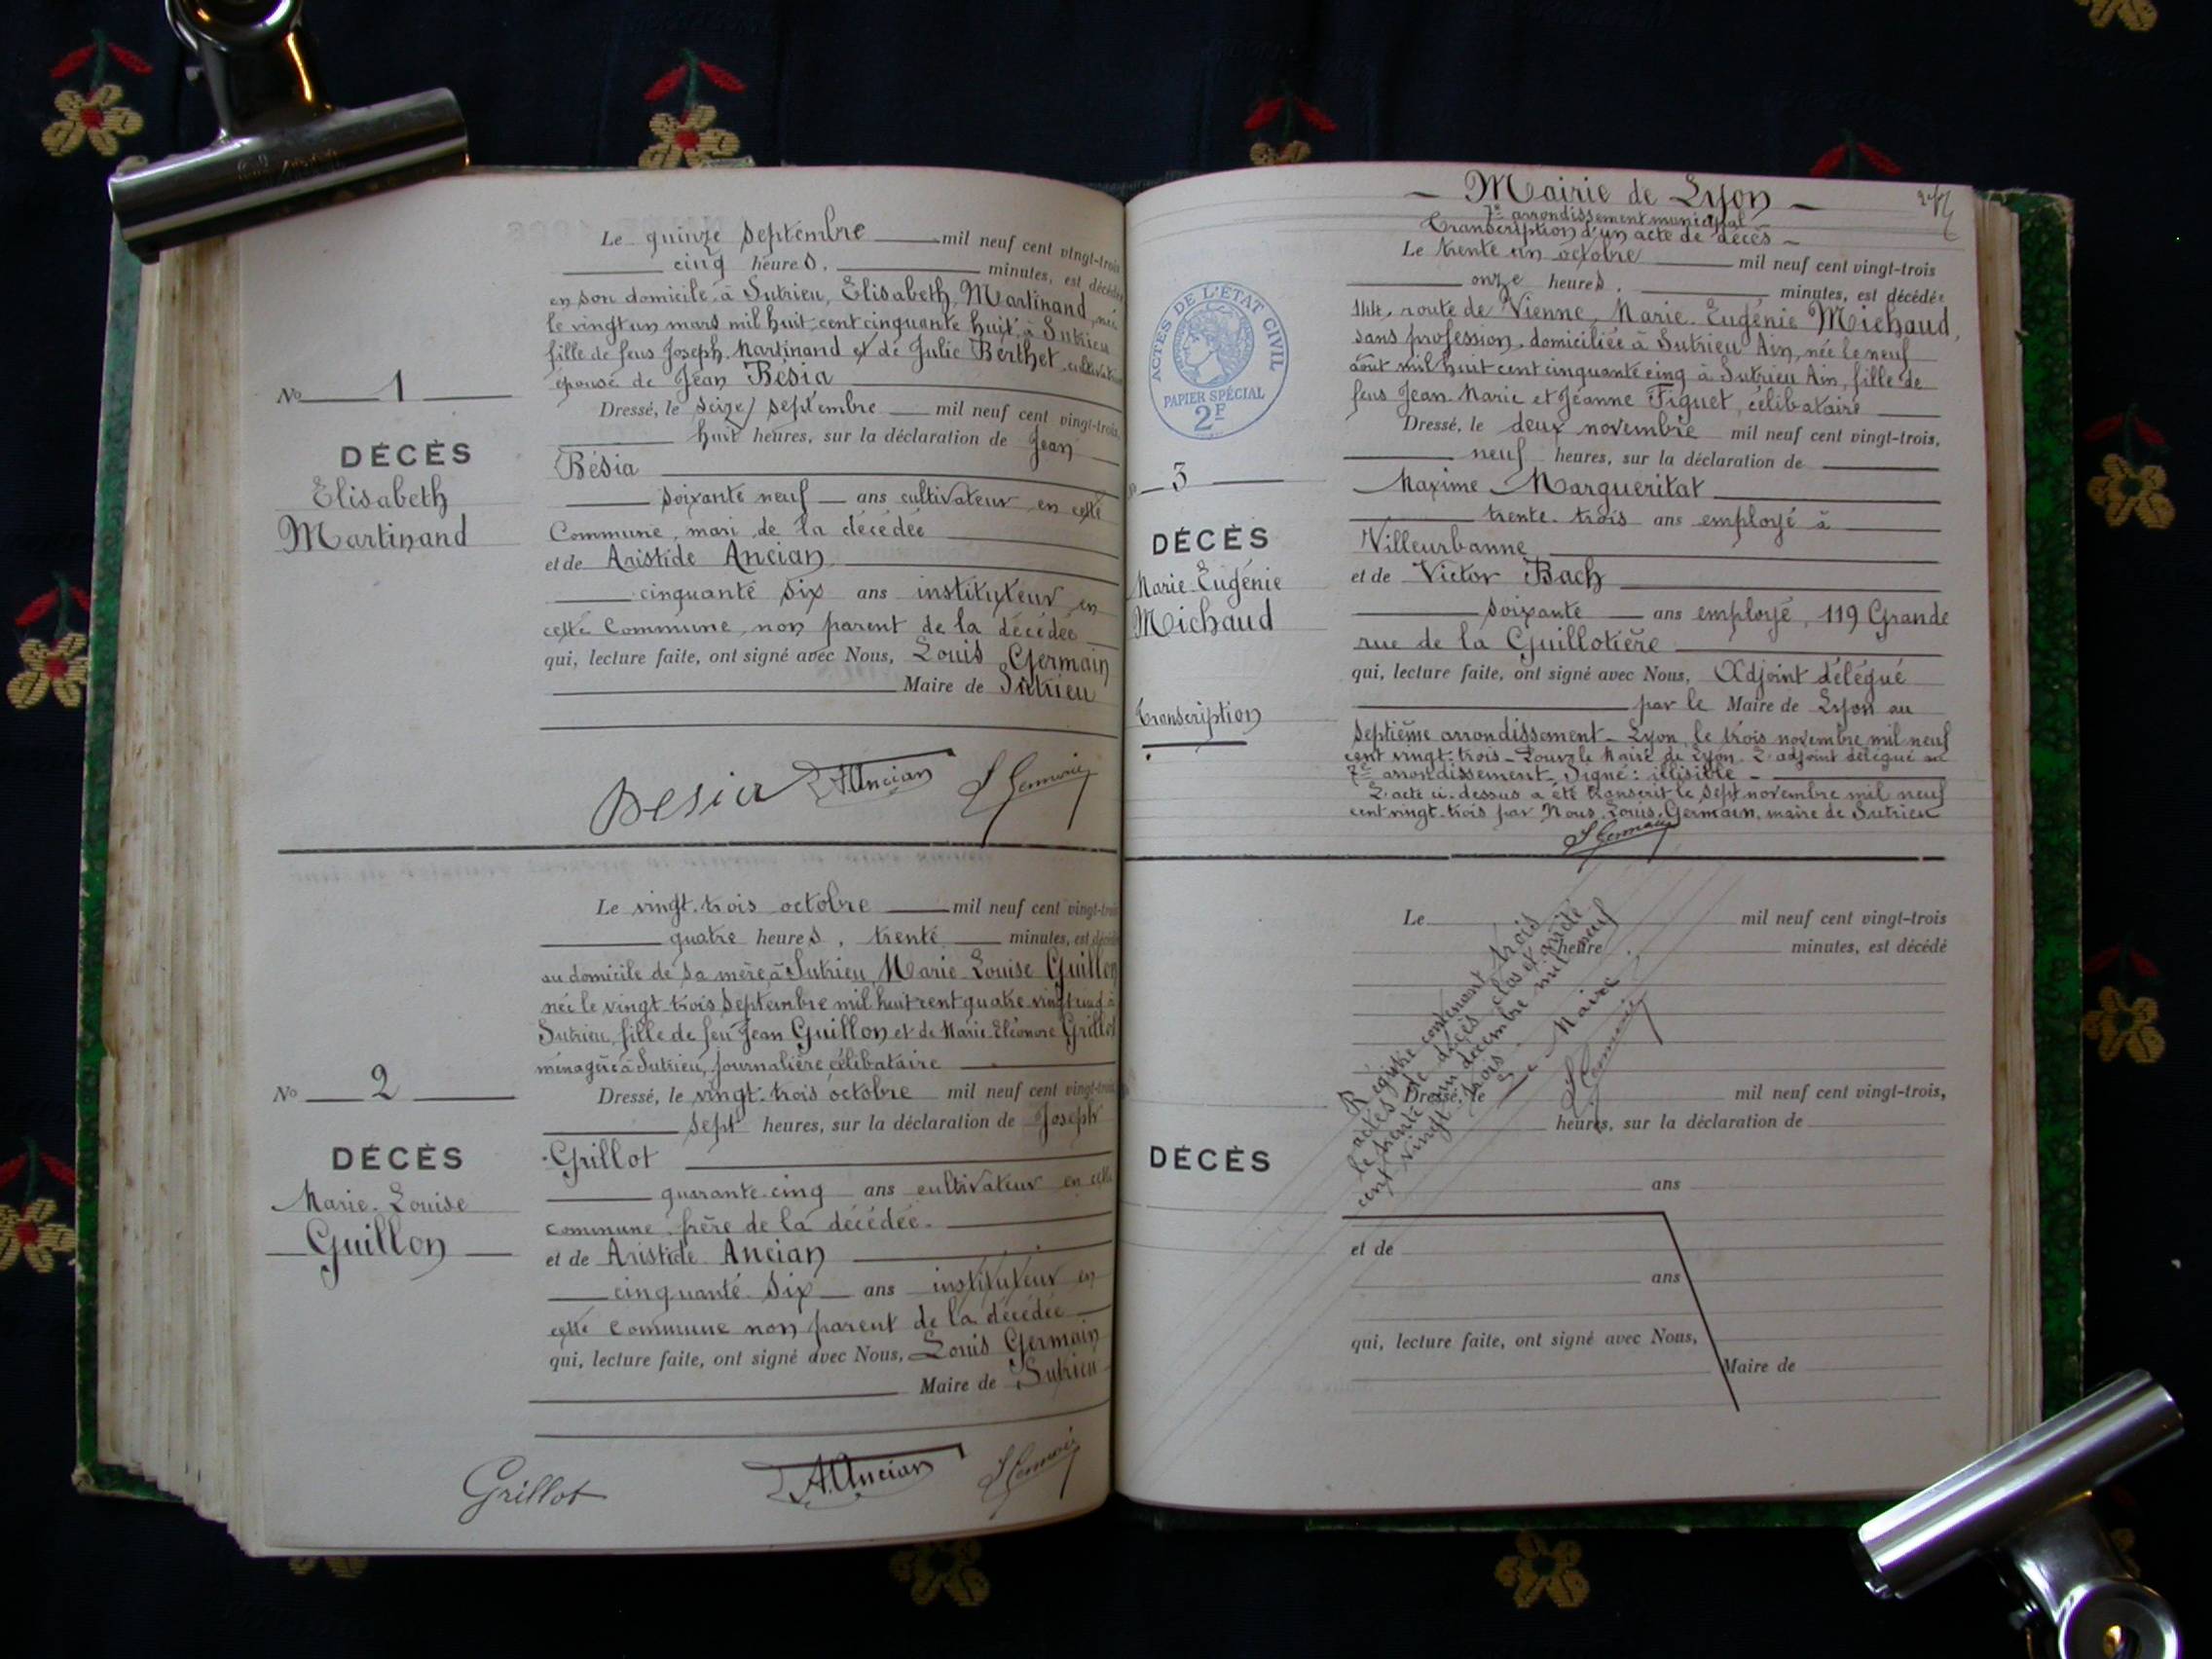 Le quinze septembre mil neuf cent vingt-trois
cinq heures, minutes, est décédée
en son domicile à Sutrieu, Elisabeth Martinand, née
le vingt un mars mil huit cent cinquante huit à Sutrieu
fille de feus Joseph Martinand et de Julie Berthet, cultivateurs
épouse de Jean Bésia
Dressé, le seize septembre mil neuf cent vingt-trois,
huit heures, sur la déclaration de Jean
Bésia
soixante neuf ans cultivateur en cette
Commune, mari de la décédée
et de Aristide Ancian
cinquante six ans instituteur en
cette Commune, non parent de la décédée
qui, lecture faite, ont signé avec Nous, Louis Germain
Maire de Sutrieu
No 1
DÉCÈS
Elisabeth
Martinand
Besia A. Ancian L Germain
Le vingt-trois octobre mil neuf cent vingt-trois
quatre heures, trente minutes, est décédée
au domicile de sa mère à Sutrieu, Marie-Louise Guillon
née le vingt-trois septembre mil huit cent quatre-vingt neuf à
Sutrieu, fille de feu Jean Guillon et de Marie-Eléonore Grillot
ménagère à Sutrieu, journalière, célibataire
Dressé, le vingt-trois octobre mil neuf cent vingt-trois,
sept heures, sur la déclaration de Joseph
Grillot
quarante-cinq ans cultivateur en cette
commune, frère de la décédée.
et de Aristide Ancian
cinquante-six ans instituteur en
cette Commune non parent de la décédée
qui, lecture faite, ont signé avec Nous, Louis Germain
Maire de Sutrieu
No 2
DÉCÈS
Marie-Louise
Guillon
Grillot A. Ancian L Germain
Mairie de Lyon
7e arrondissement municipal
Transcription d'un acte de décès
Le trente un octobre mil neuf cent vingt-trois
onze heures, minutes, est décédée
144, route de Vienne, Marie-Eugénie Michaud,
sans profession, domiciliée à Sutrieu Ain, née le neuf
août mil huit cent cinquante cinq à Sutrieu Ain, fille de
feus Jean-Marie et Jeanne Figuet, célibataire
Dressé, le deux novembre mil neuf cent vingt-trois,
neuf heures, sur la déclaration de
Maxime Margueritat
trente-trois ans employé à
Villeurbanne
et de Victor Bach
soixante ans employé, 119 Grande
rue de la Guillotière
qui, lecture faite, ont signé avec Nous, Adjoint délégué
par le Maire de Lyon au
septième arrondissement - Lyon, le trois novembre mil neuf
cent vingt-trois - Pour le Maire de Lyon. L'adjoint délégué au
7e arrondissement - Signé : illisible -
L'acte ci-dessus a été transcrit le sept novembre mil neuf
cent vingt-trois par Nous, Louis Germain, maire de Sutrieu
L Germain
ACTES DE L'ÉTAT CIVIL
PAPIER SPÉCIAL
2F
3
DÉCÈS
Marie-Eugénie
Michaud
Transcription
Le mil neuf cent vingt-trois
heure, minutes, est décédé
Dressé, le mil neuf cent vingt-trois,
heures, sur la déclaration de
DÉCÈS
ans
et de
ans
qui, lecture faite, ont signé avec Nous,
Maire de
Registre contenant trois
actes de décès clos et arrêté
le trente un décembre mil neuf
cent vingt-trois
Le Maire
L Germain